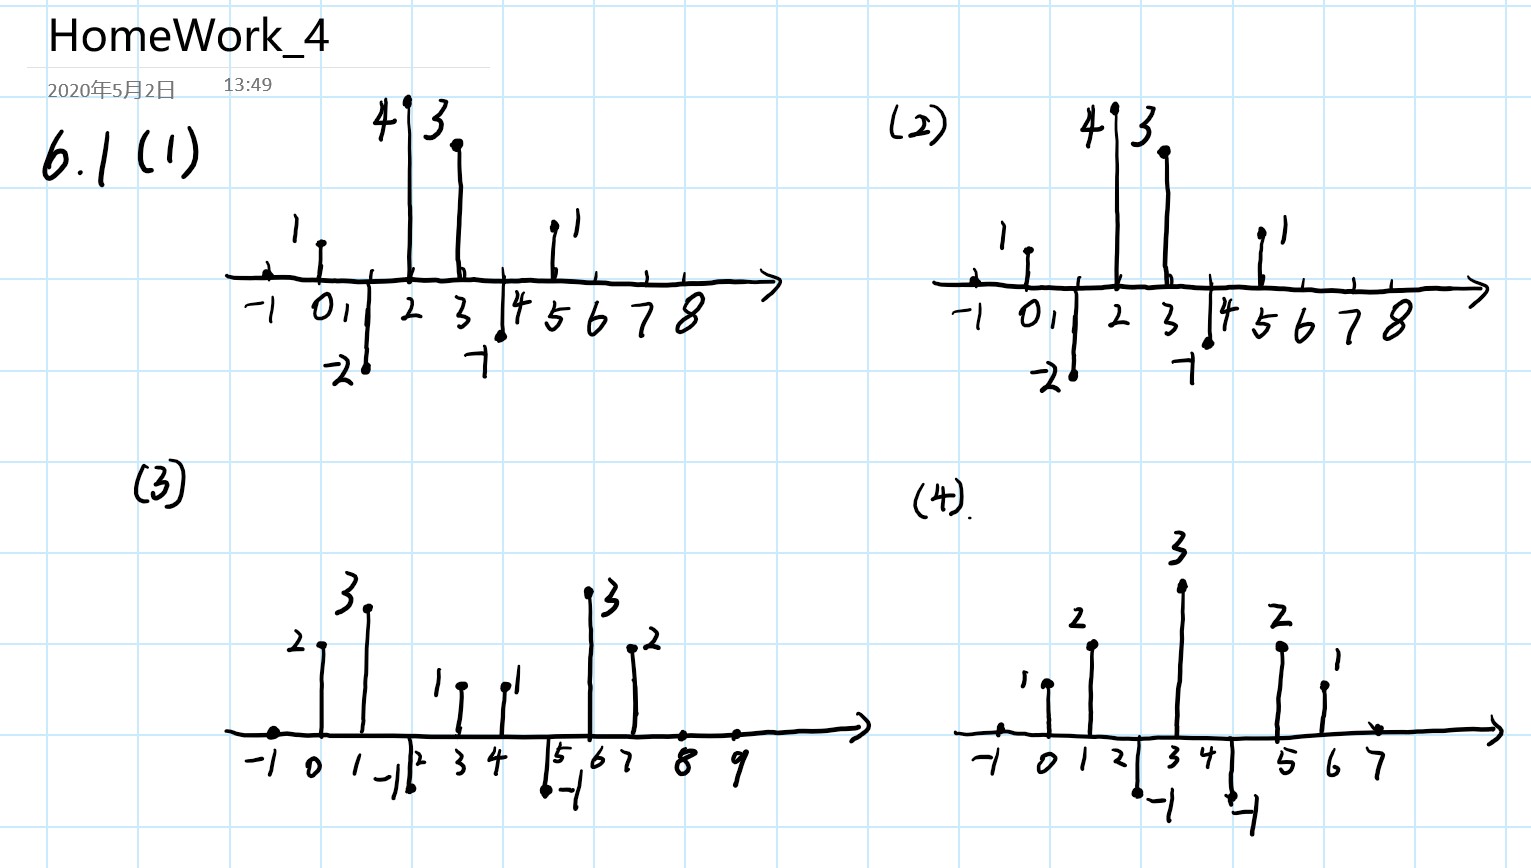 HomeWork_4
2020年5月2日 13:49
6.1 (1)
4 3
1 1
-1 0 1 2 3 4 5 6 7 8
-2 -1
(2)
4 3
1 1
-1 0 1 2 3 4 5 6 7 8
-2 -1
(3)
3 3
2 1 1 2
-1 0 1 2 3 4 5 6 7 8 9
-1 -1
(4).
3
2 2
1 1
-1 0 1 2 3 4 5 6 7
-1 -1